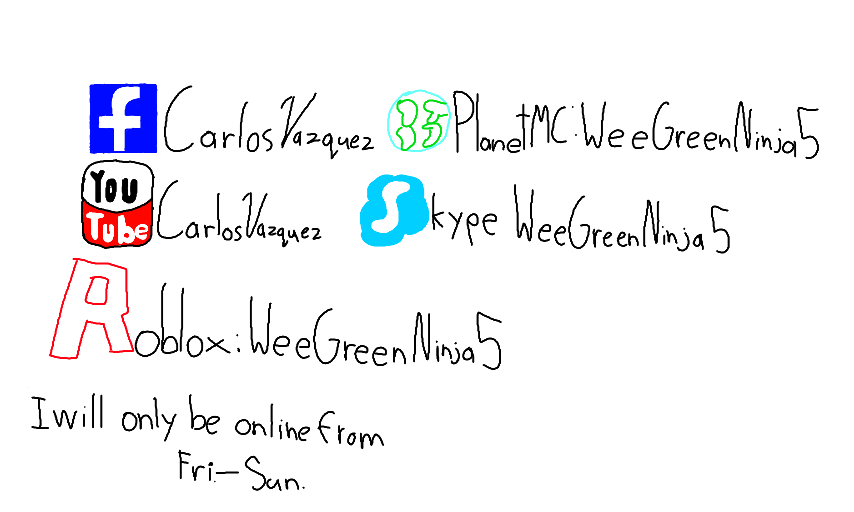 f Carlos Vazquez PlanetMC:WeeGreenNinja5
You
Tube Carlos Vazquez Skype WeeGreenNinja5
Roblox:WeeGreenNinja5
I will only be online from
Fri.-Sun.